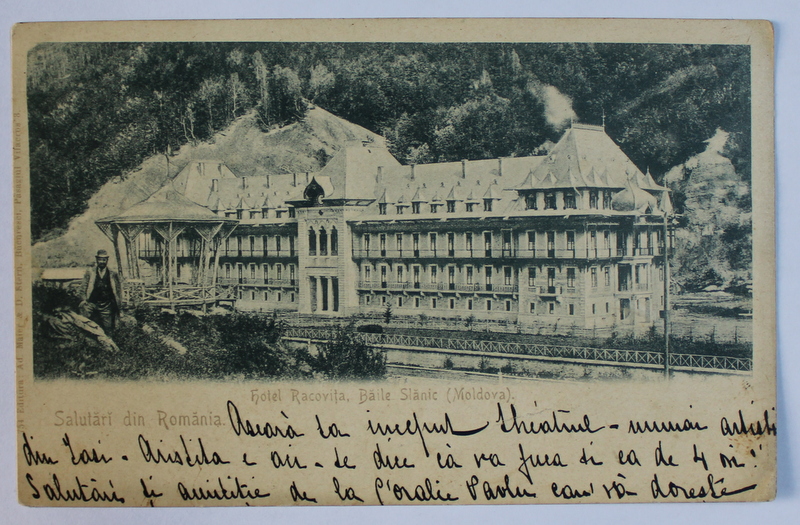 Hotel Racoviţa, Băile Slănic (Moldova).
Salutărĭ din România.
Aseară sa inceput theatrul - numai artisti
din Iasi - Aristita e aci - se dice că va juca si ea de 4 ori!
Salutări si amiciţie de la Coralie Pavlu care vă doreşte
Editura Ad. Maier & D. Stern, Bucuresci, Pasagiul Vilacros